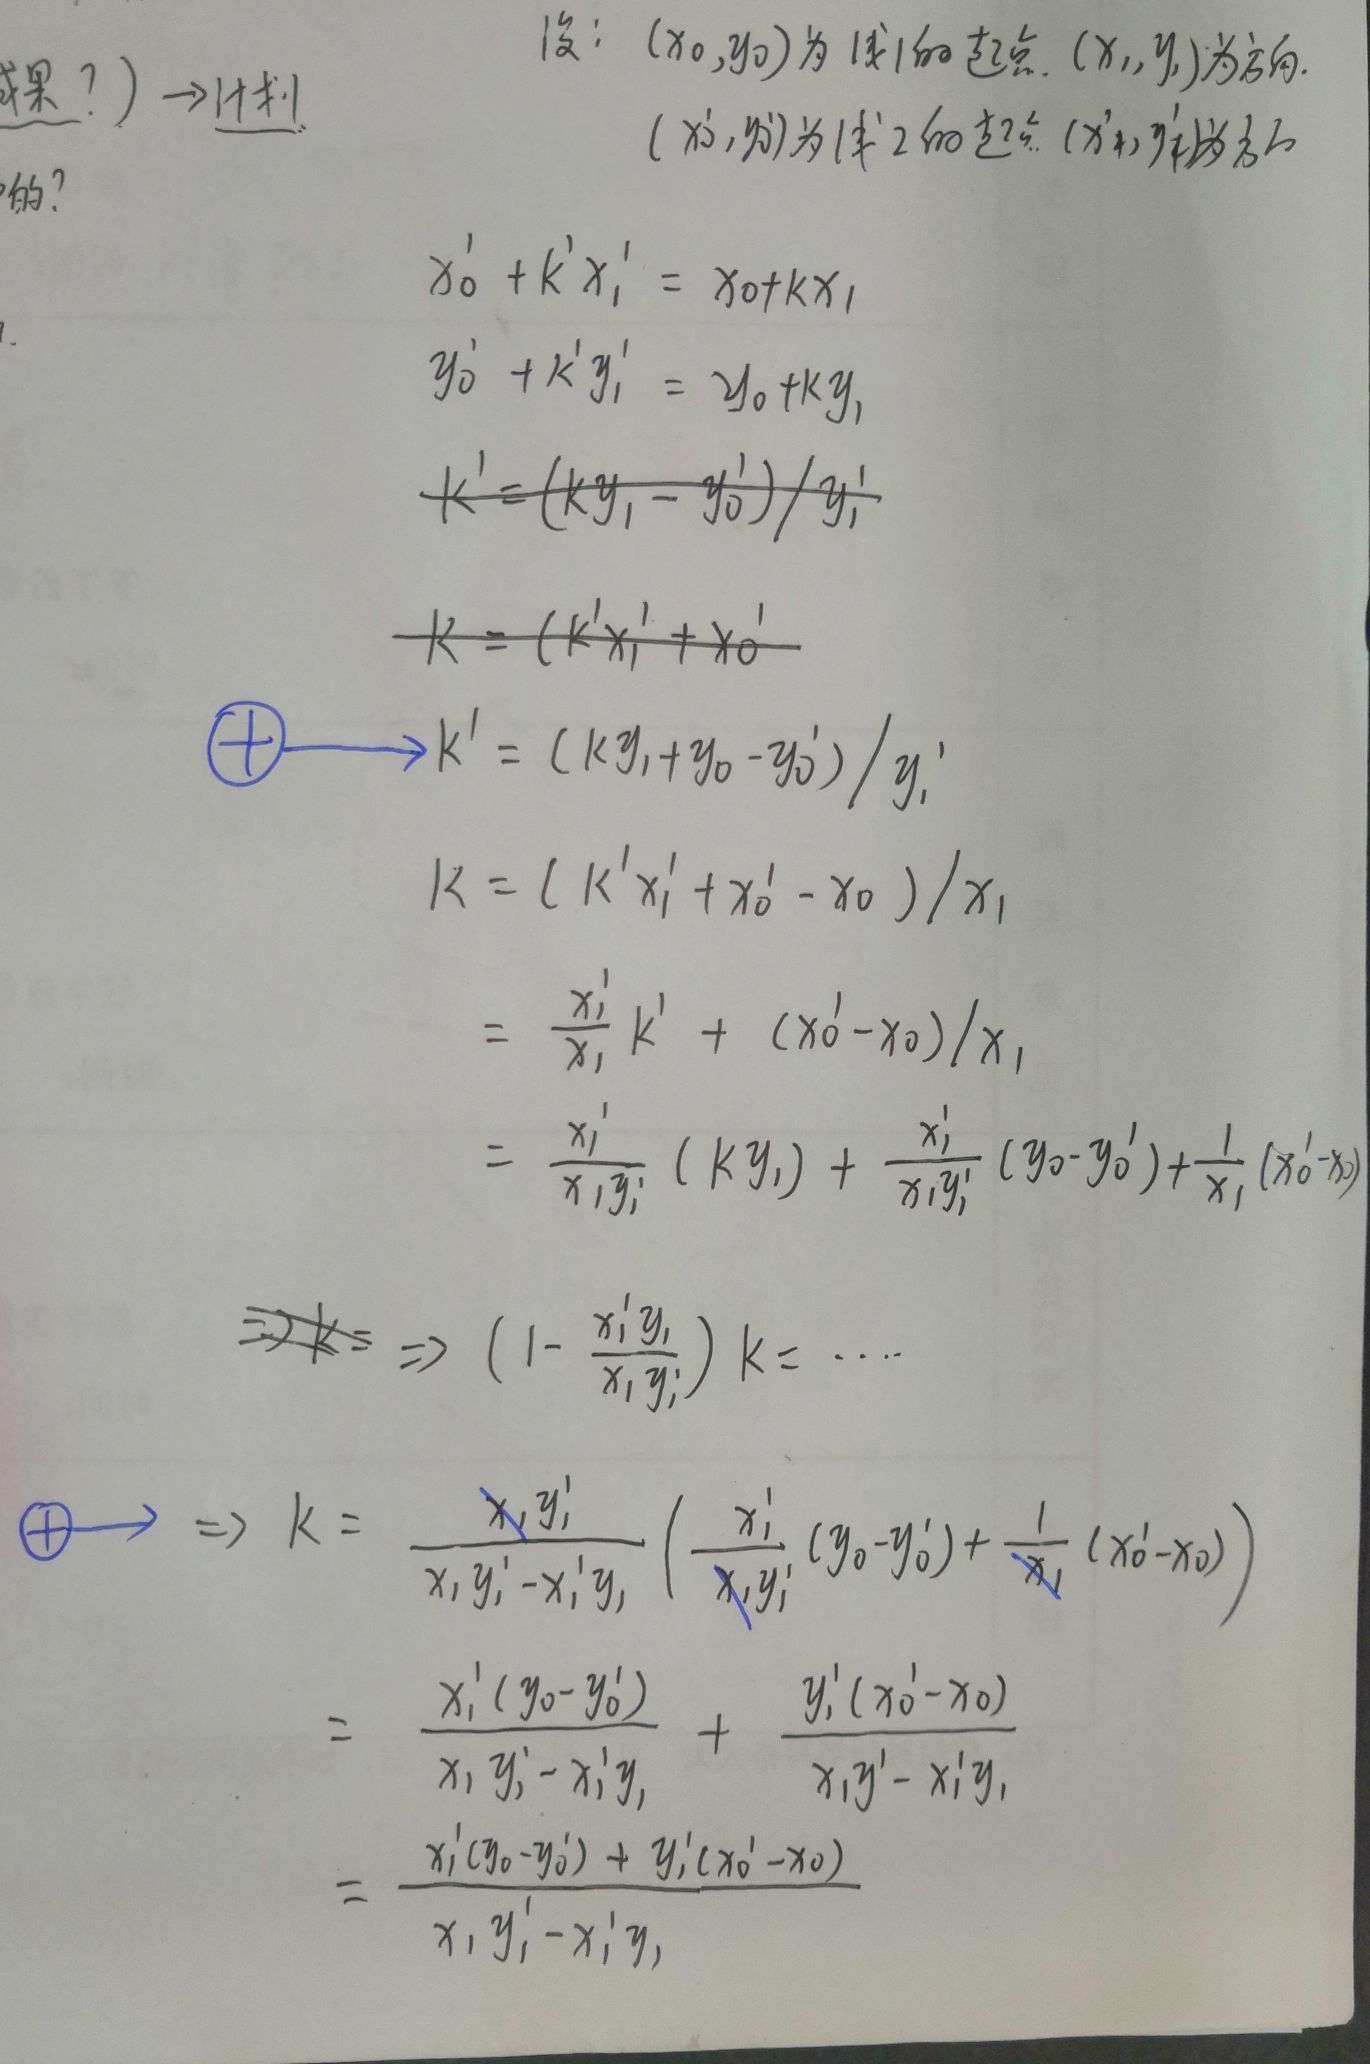 设: (x₀,y₀)为线1的起点. (x₁,y₁)为方向.
果?)→计划
(x₀',y₀')为线2的起点 (x₁',y₁')为方向
的?
x₀' + k'x₁' = x₀+kx₁
y₀' + k'y₁' = y₀+ky₁
k' = (ky₁ - y₀')/y₁'
k = (k'x₁' + x₀'
⊕→ k' = (ky₁+y₀-y₀')/y₁'
k = (k'x₁' + x₀' - x₀)/x₁
= x₁'/x₁ k' + (x₀'-x₀)/x₁
= x₁'/(x₁y₁') (ky₁) + x₁'/(x₁y₁') (y₀-y₀') + 1/x₁ (x₀'-x₀)
=> k = => (1- x₁'y₁/(x₁y₁')) k = ....
⊕→ => k = x₁y₁'/(x₁y₁'-x₁'y₁) ( x₁'/(x₁y₁') (y₀-y₀') + 1/x₁ (x₀'-x₀) )
= x₁'(y₀-y₀')/(x₁y₁'-x₁'y₁) + y₁'(x₀'-x₀)/(x₁y'-x₁'y₁)
= (x₁'(y₀-y₀') + y₁'(x₀'-x₀))/(x₁y₁'-x₁'y₁)